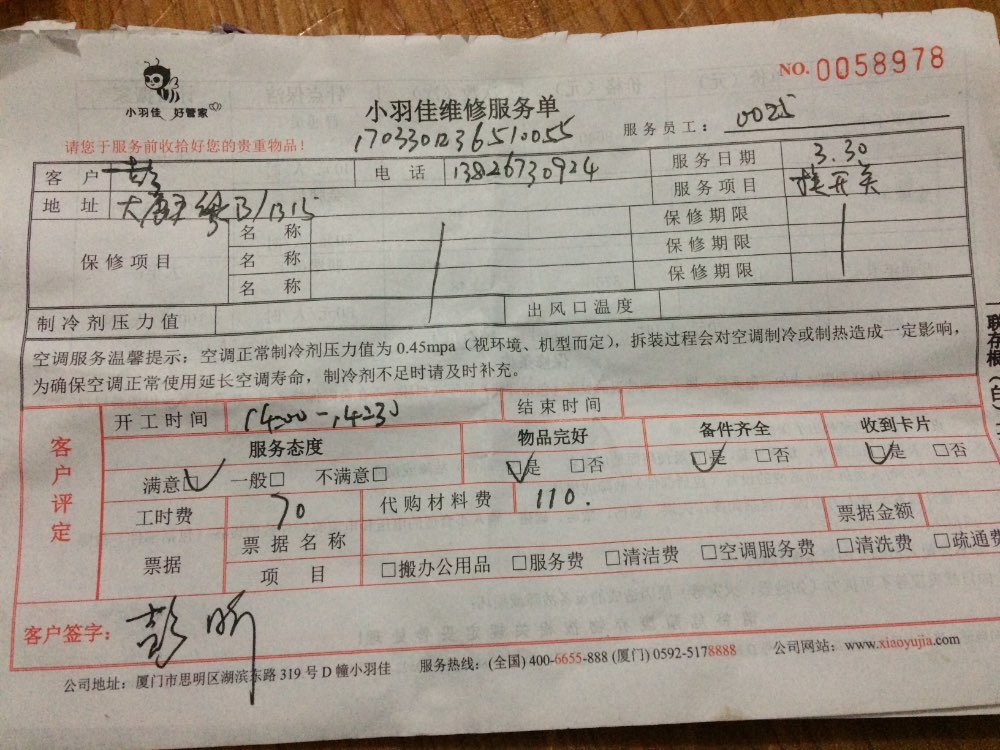 NO. 0058978
小羽佳 好管家
小羽佳维修服务单
1703301236510055
服务员工： 0025
请您于服务前收拾好您的贵重物品！
客户 彭 电话 13826730924 服务日期 3.30
地址 B/1315 服务项目 换开关
保修项目 名称 保修期限
名称 保修期限
名称 保修期限
制冷剂压力值 出风口温度
空调服务温馨提示：空调正常制冷剂压力值为 0.45mpa（视环境、机型而定），拆装过程会对空调制冷或制热造成一定影响，
为确保空调正常使用延长空调寿命，制冷剂不足时请及时补充。
客户评定
开工时间 1400-1430 结束时间
服务态度 物品完好 备件齐全 收到卡片
满意□ 一般□ 不满意□ □是 □否 □是 □否 □是 □否
工时费 70 代购材料费 110. 票据金额
票据 票据名称
项目 □搬办公用品 □服务费 □清洁费 □空调服务费 □清洗费 □疏通费
客户签字： 彭昕
公司地址：厦门市思明区湖滨东路 319 号 D 幢小羽佳 服务热线：(全国) 400-6655-888 (厦门) 0592-5178888 公司网站：www.xiaoyujia.com
联存根（白